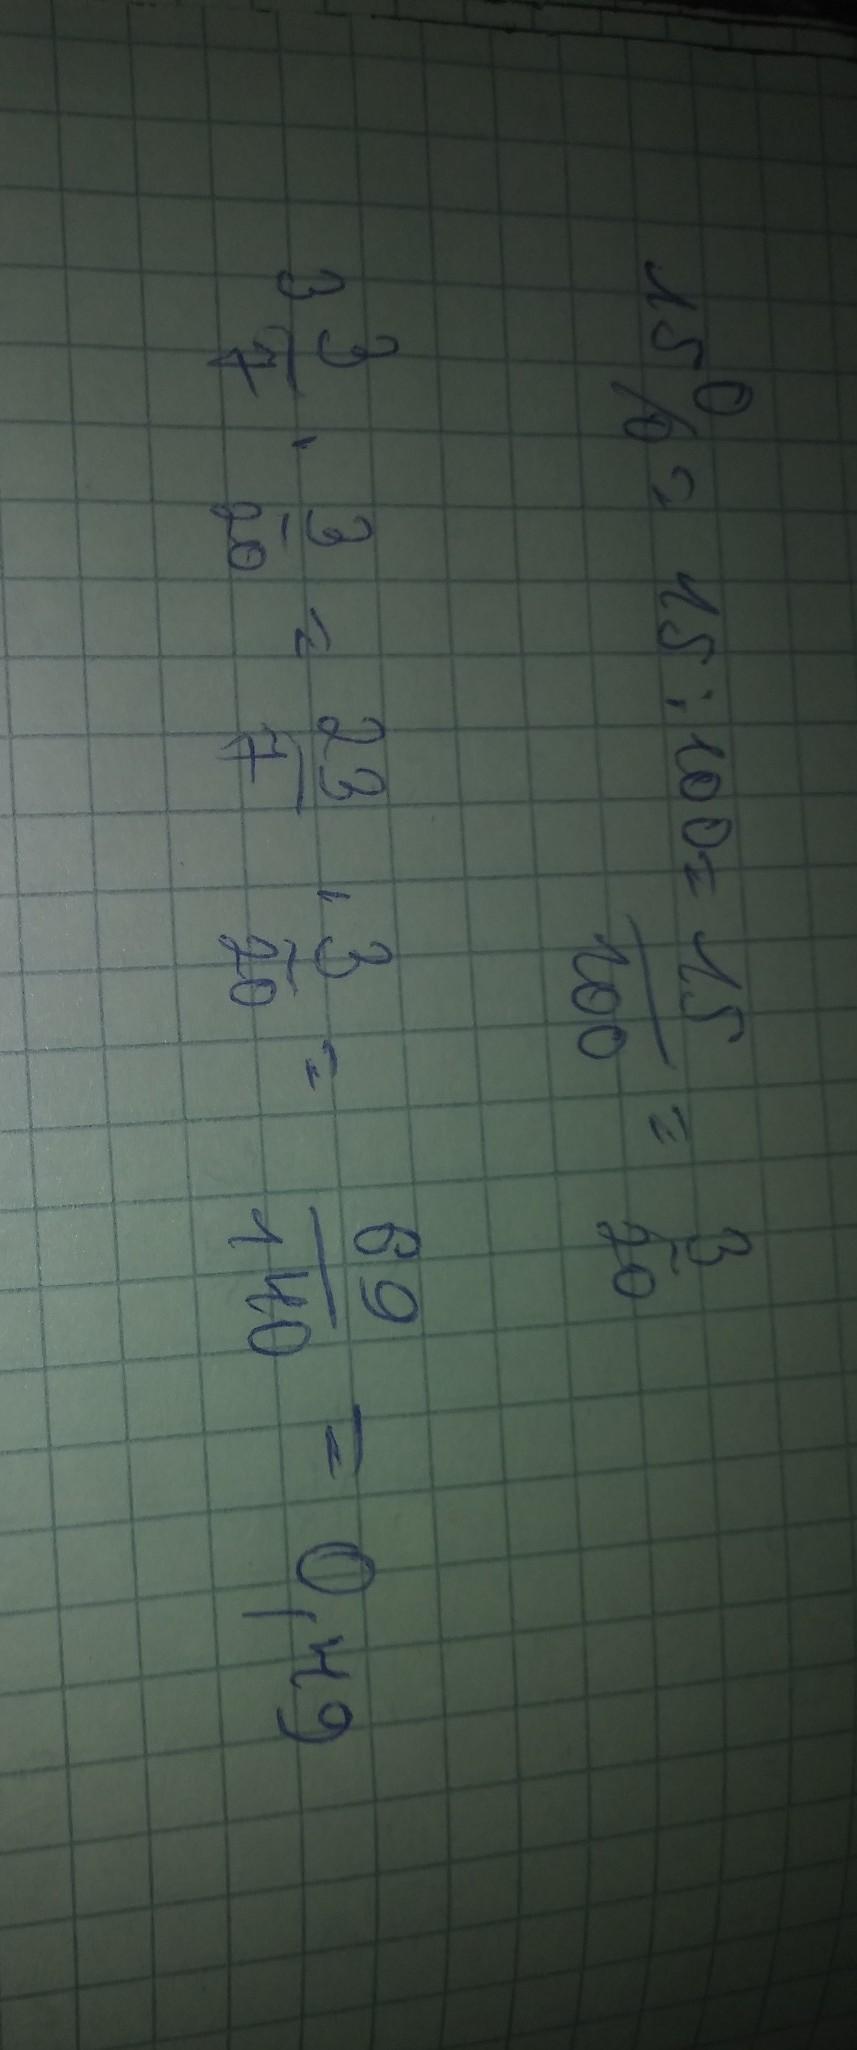 15% = 15 : 100 = 15/100 = 3/20
3 3/7 · 3/20 = 23/7 · 3/20 = 69/140 = 0,49